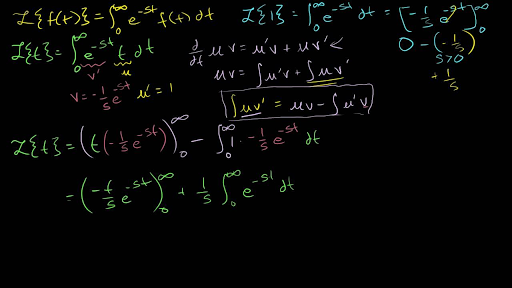 ℒ{f(t)} = ∫₀^∞ e^{-st} f(t) dt
ℒ{1} = ∫₀^∞ e^{-st} dt = [-1/s e^{-st}]₀^∞
0 - (-1/s)
s>0
+ 1/s
ℒ{t} = ∫₀^∞ e^{-st} t dt
v' u
v = -1/s e^{-st} u' = 1
∂/∂t uv = u'v + uv' <
uv = ∫u'v + ∫uv'
∫uv' = uv - ∫u'v
ℒ{t} = (t(-1/s e^{-st}))₀^∞ - ∫₀^∞ 1 · -1/s e^{-st} dt
= (-t/s e^{-st})₀^∞ + 1/s ∫₀^∞ e^{-st} dt